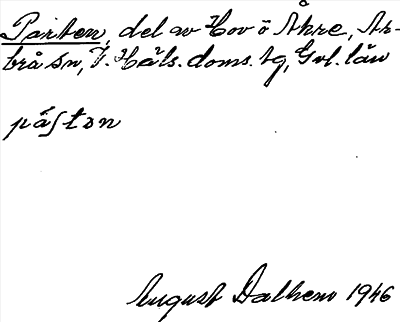 Parten, del av Hov ö Åkre, Ar-
brå sn, V. Häls. doms. tg, Gvl. län
August Dalhem 1946